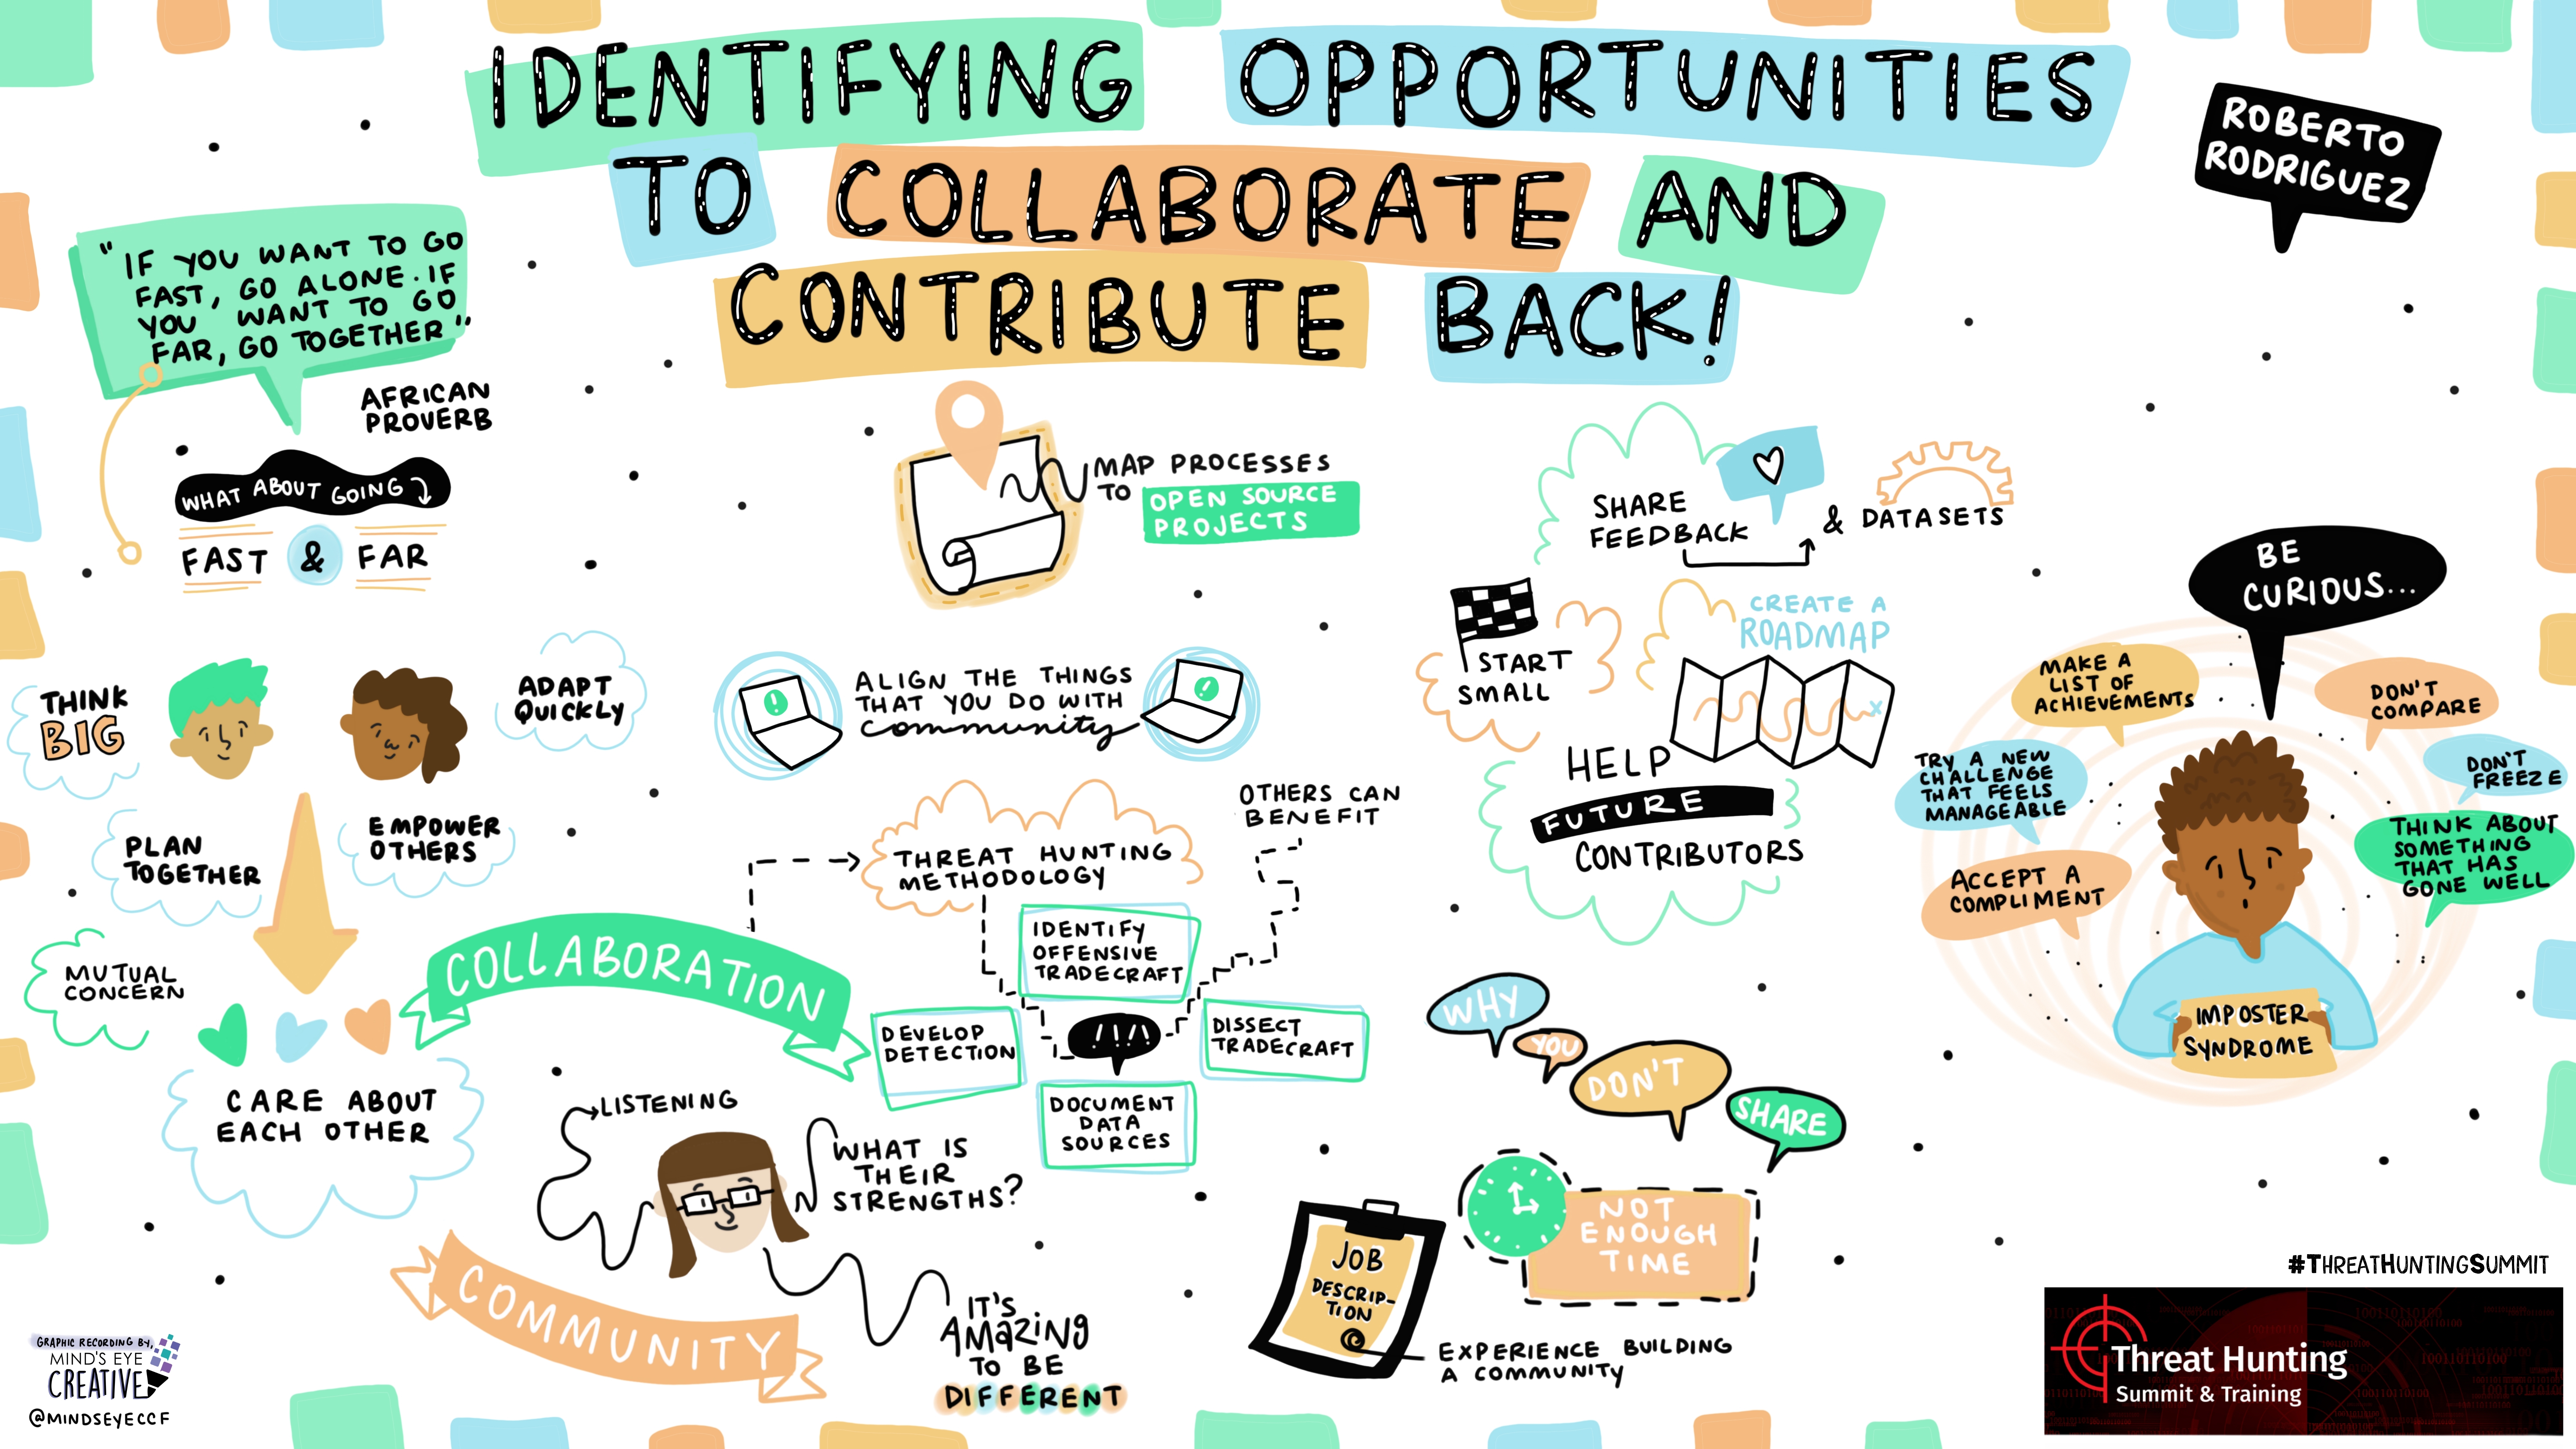 IDENTIFYING OPPORTUNITIES
TO COLLABORATE AND
CONTRIBUTE BACK!
ROBERTO
RODRIGUEZ
"IF YOU WANT TO GO
FAST, GO ALONE. IF
YOU WANT TO GO
FAR, GO TOGETHER"
AFRICAN
PROVERB
WHAT ABOUT GOING
FAST & FAR
THINK
BIG
ADAPT
QUICKLY
PLAN
TOGETHER
EMPOWER
OTHERS
MUTUAL
CONCERN
CARE ABOUT
EACH OTHER
MAP PROCESSES
TO OPEN SOURCE
PROJECTS
ALIGN THE THINGS
THAT YOU DO WITH
community
COLLABORATION
THREAT HUNTING
METHODOLOGY
OTHERS CAN
BENEFIT
IDENTIFY
OFFENSIVE
TRADECRAFT
DEVELOP
DETECTION
DISSECT
TRADECRAFT
DOCUMENT
DATA
SOURCES
LISTENING
WHAT IS
THEIR
STRENGTHS?
COMMUNITY
IT'S
AMAZING
TO BE
DIFFERENT
SHARE
FEEDBACK
& DATASETS
START
SMALL
CREATE A
ROADMAP
HELP
FUTURE
CONTRIBUTORS
WHY
YOU
DON'T
SHARE
NOT
ENOUGH
TIME
JOB
DESCRIP-
TION
EXPERIENCE BUILDING
A COMMUNITY
BE
CURIOUS...
MAKE A
LIST OF
ACHIEVEMENTS
DON'T
COMPARE
TRY A NEW
CHALLENGE
THAT FEELS
MANAGEABLE
DON'T
FREEZE
ACCEPT A
COMPLIMENT
THINK ABOUT
SOMETHING
THAT HAS
GONE WELL
IMPOSTER
SYNDROME
#THREATHUNTINGSUMMIT
Threat Hunting
Summit & Training
GRAPHIC RECORDING BY,
MIND'S EYE
CREATIVE
@MINDSEYECCF